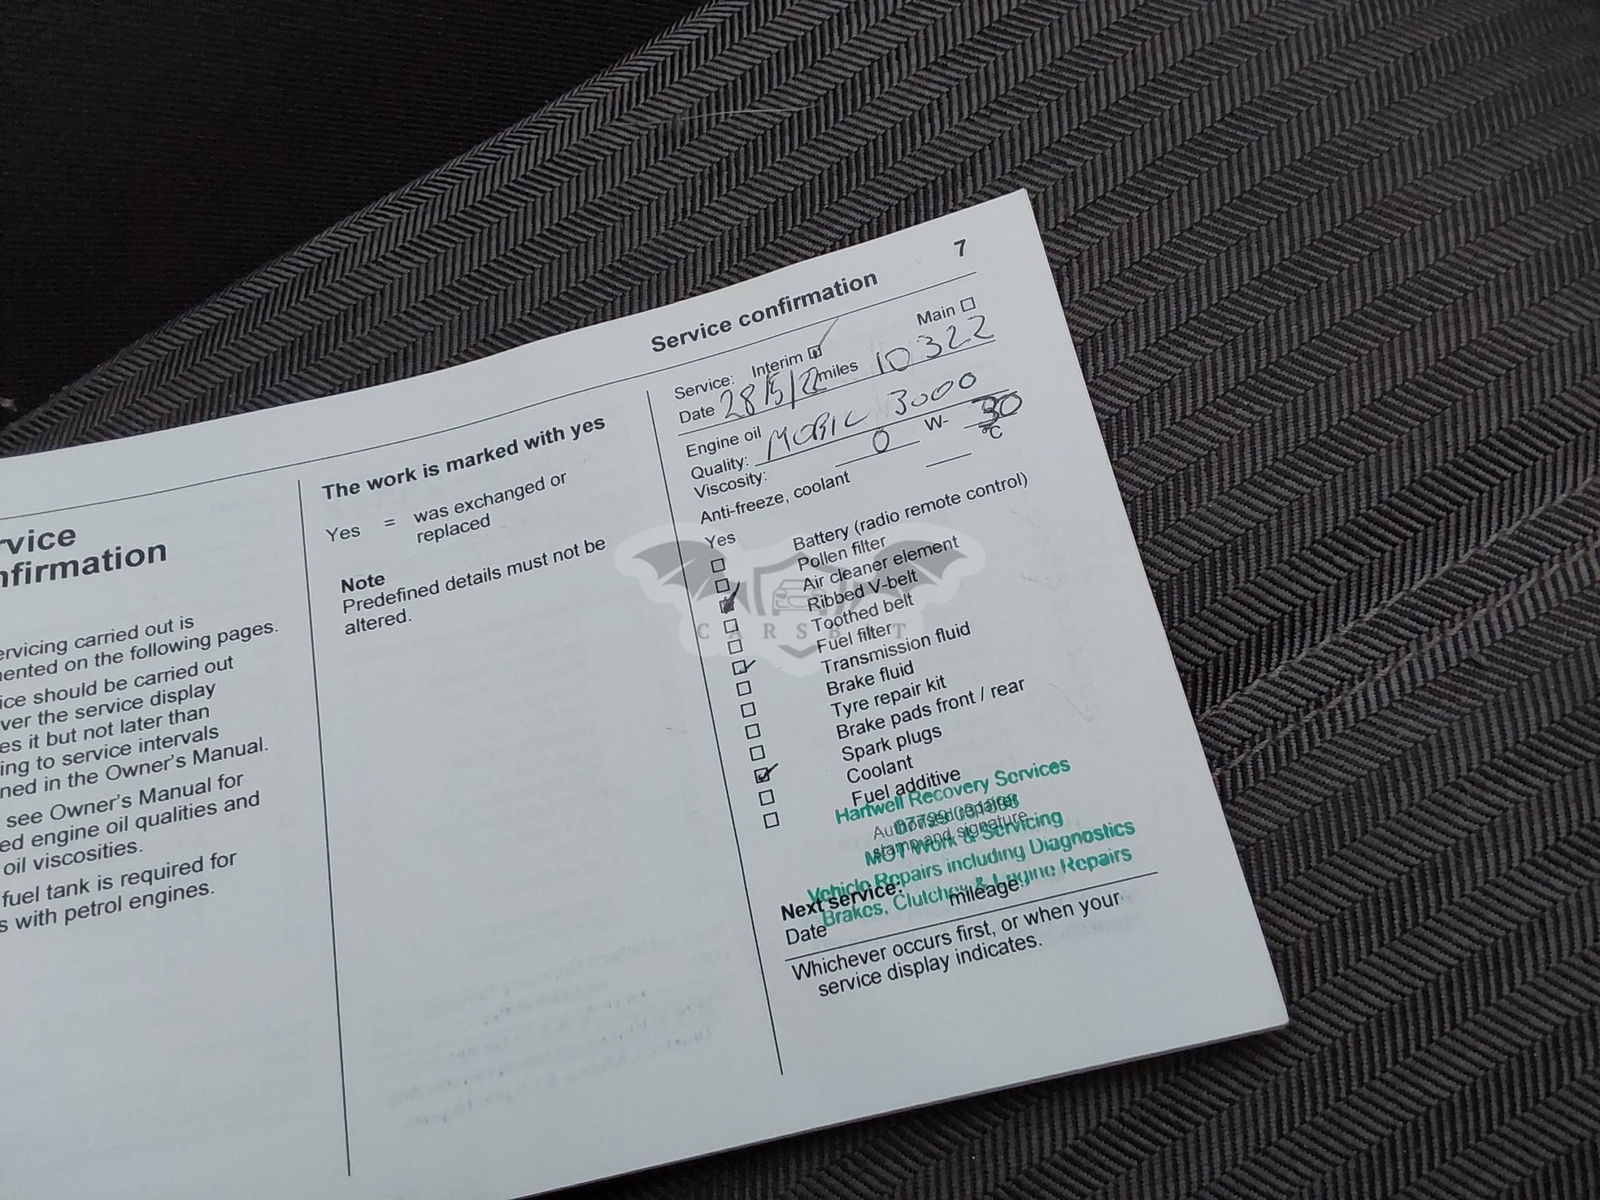 7
Service confirmation
rvice
nfirmation
ervicing carried out is
ented on the following pages.
ice should be carried out
ver the service display
es it but not later than
ing to service intervals
ned in the Owner's Manual.
see Owner's Manual for
ed engine oil qualities and
oil viscosities.
fuel tank is required for
s with petrol engines.
The work is marked with yes
Yes = was exchanged or
replaced
Note
Predefined details must not be
altered.
Service: Interim Main
Date 28/5/2 miles 10322
Engine oil
Quality: MOBIL 3000
Viscosity: 0 W- 30
Anti-freeze, coolant °C
Yes
Battery (radio remote control)
Pollen filter
Air cleaner element
Ribbed V-belt
Toothed belt
Fuel filter
Transmission fluid
Brake fluid
Tyre repair kit
Brake pads front / rear
Spark plugs
Coolant
Fuel additive
Hartwell Recovery Services
Authorised repairer
stamp and signature
MOT Work & Servicing
Vehicle Repairs including Diagnostics
Brakes, Clutches & Engine Repairs
Next service:
Date mileage:
Whichever occurs first, or when your
service display indicates.
CARSBAT